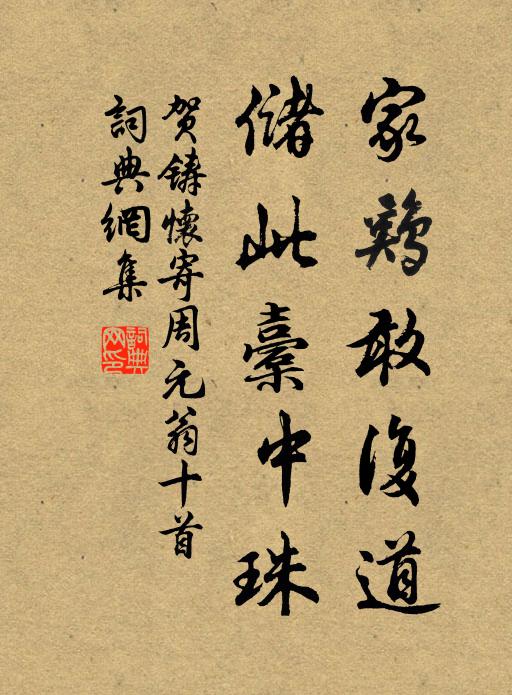 家鷄敢復道
儲此橐中珠
賀鑄懷寄周元翁十首
詞典網集
詞典网印